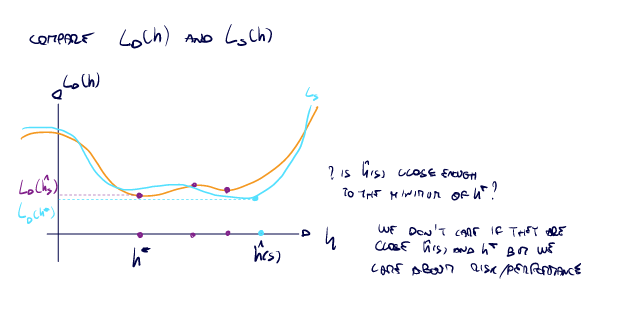 COMPARE L_D(h) AND L_S(h)
L_D(h)
L_S
L_D(ĥ_S)
L_D(h*)
? IS ĥ(S) CLOSE ENOUGH
TO THE MINIMUM OF h* ?
h
h*
ĥ(S)
WE DON'T CARE IF THEY ARE
CLOSE ĥ(S) AND h* BUT WE
CARE ABOUT RISK/PERFORMANCE